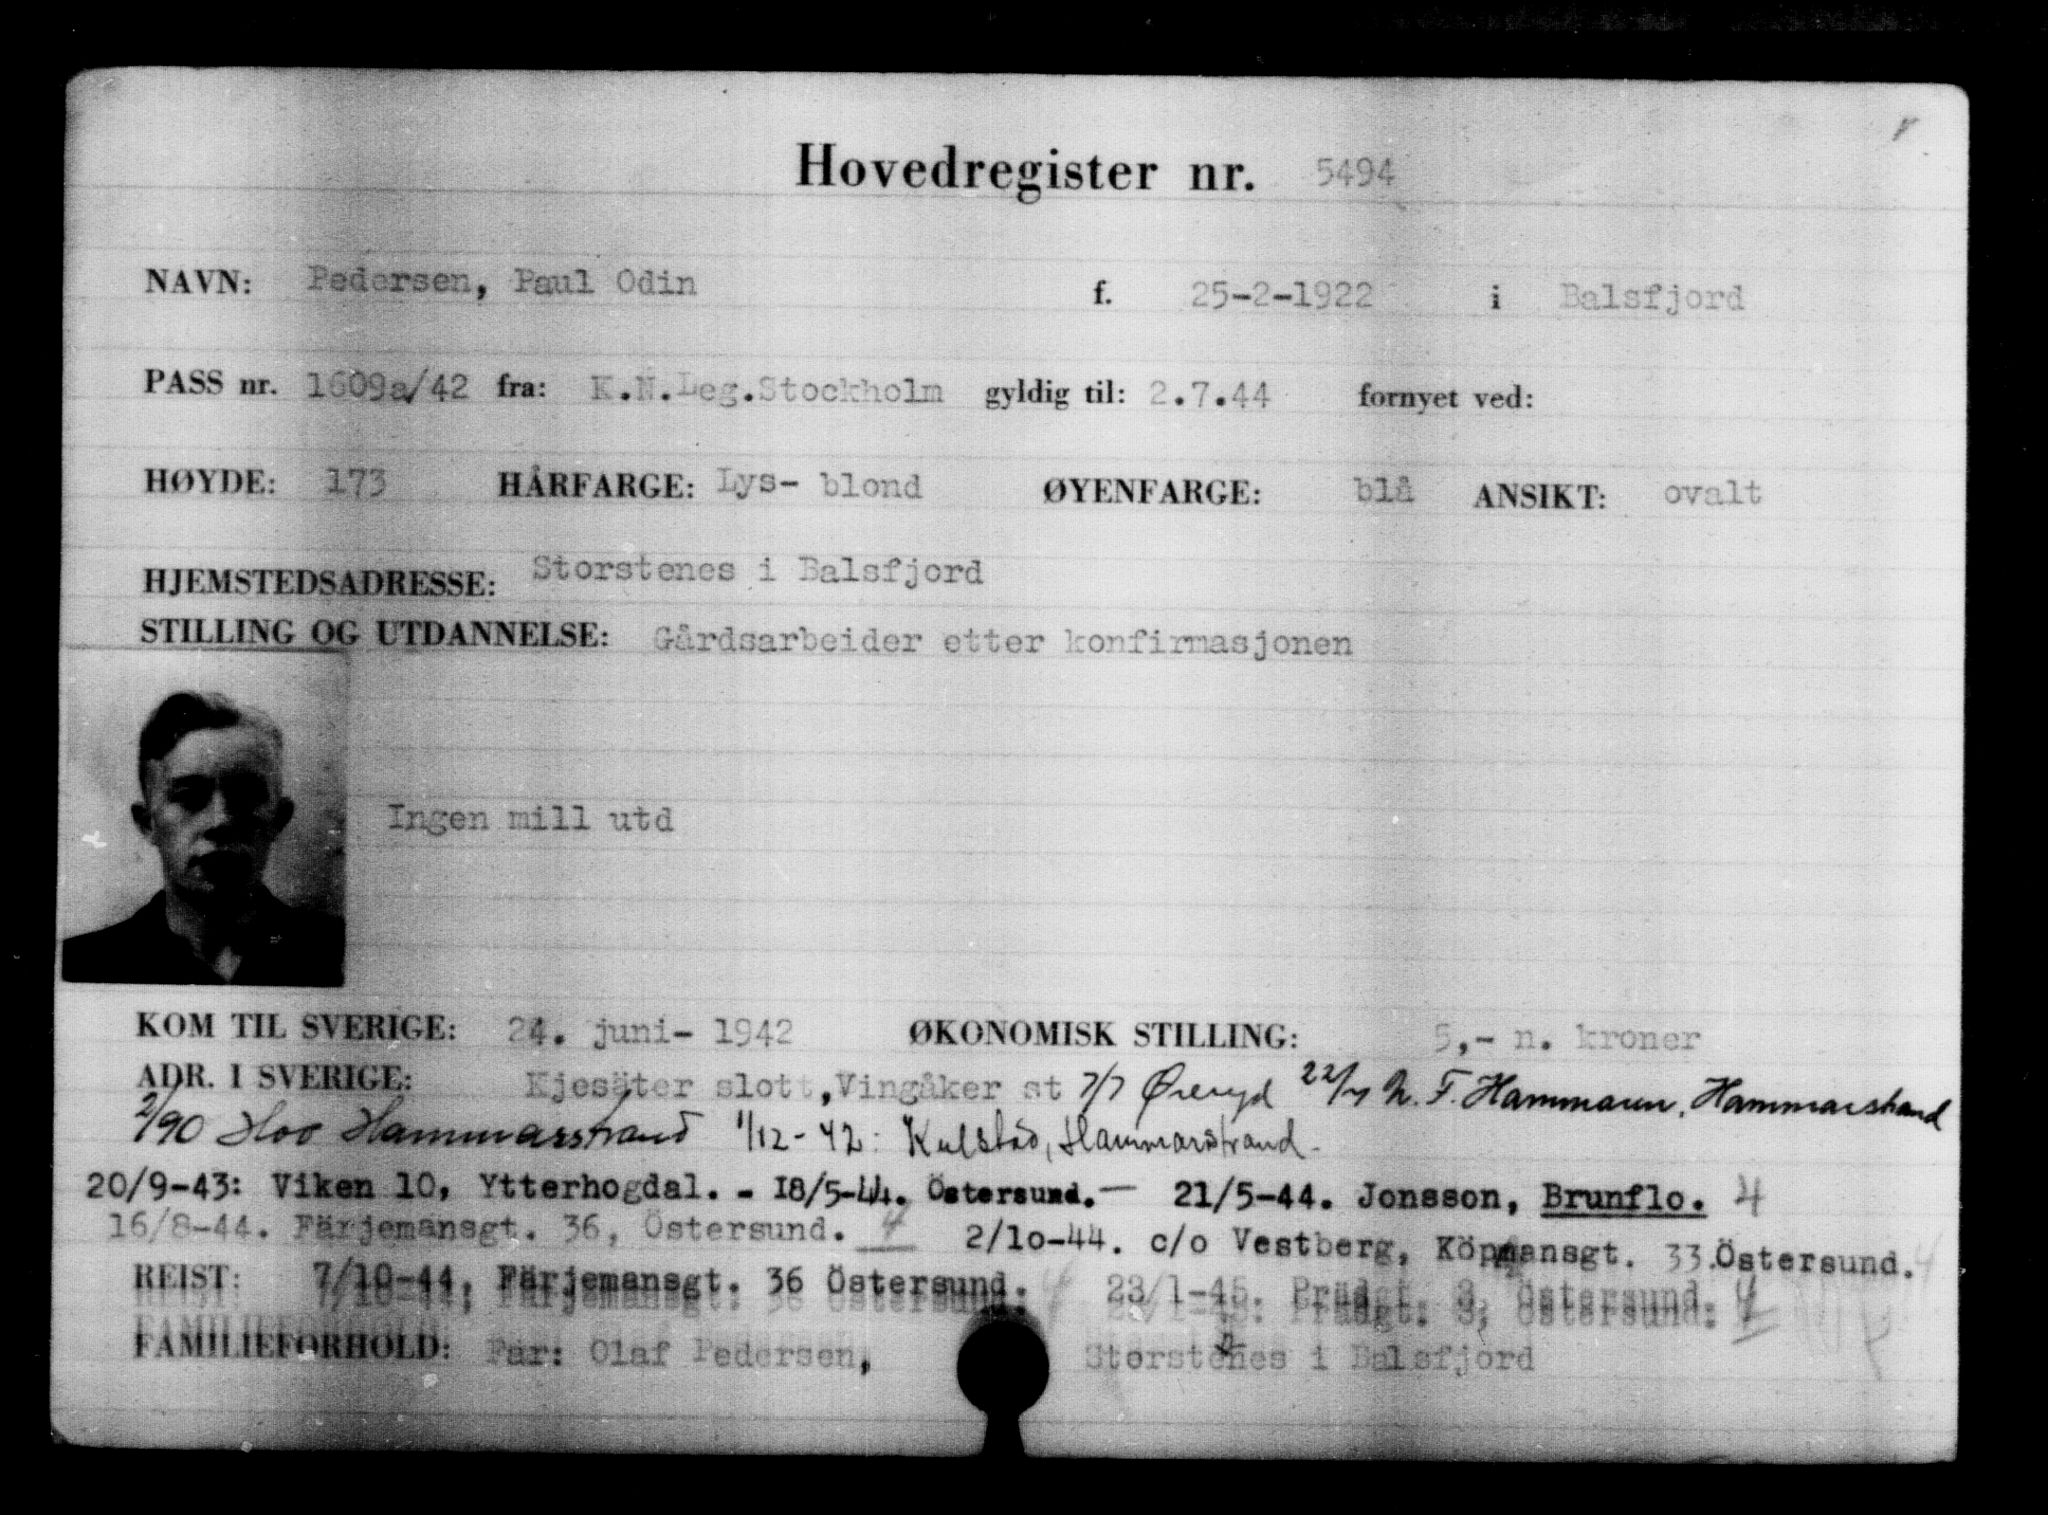 Hovedregister nr. 5494
NAVN: Pedersen, Paul Odin f. 25-2-1922 i Balsfjord
PASS nr. 1609a/42 fra: K.N.Leg.Stockholm gyldig til: 2.7.44 fornyet ved:
HØYDE: 173 HÅRFARGE: Lys- blond ØYENFARGE: blå ANSIKT: ovalt
HJEMSTEDSADRESSE: Storstenes i Balsfjord
STILLING OG UTDANNELSE: Gårdsarbeider etter konfirmasjonen
Ingen mill utd
KOM TIL SVERIGE: 24. juni- 1942 ØKONOMISK STILLING: 5,- n. kroner
ADR. I SVERIGE: Kjesäter slott, Vingåker st 7/7 Øreryd 22/7 N. F. Hammaren, Hammarstrand
2/90 Hoo Hammarstrand 1/12-42: Kulstad, Hammarstrand.
20/9-43: Viken 10, Ytterhogdal. - 18/5-44. Östersund. — 21/5-44. Jonsson, Brunflo. 4
16/8-44. Färjemansgt. 36, Östersund. 4 2/10-44. c/o Vestberg, Köpmansgt. 33.Östersund. 4
REIST: 7/10-44, Färjemansgt. 36 Östersund. 4 23/1-45. Prädgt. 3, Östersund. 4
FAMILIEFORHOLD: Far: Olaf Pedersen, Storstenes i Balsfjord